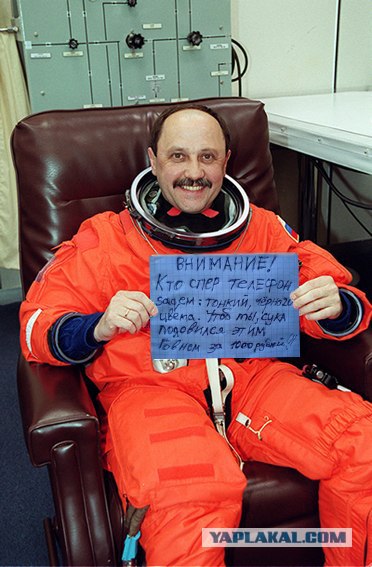 ВНИМАНИЕ!
Кто спер телефон
SAGEM: тонкий, чёрного
цвета. Чтоб ты, сука
подовился этим
говном за 1000 рублей.!!
YAPLAKAL.COM